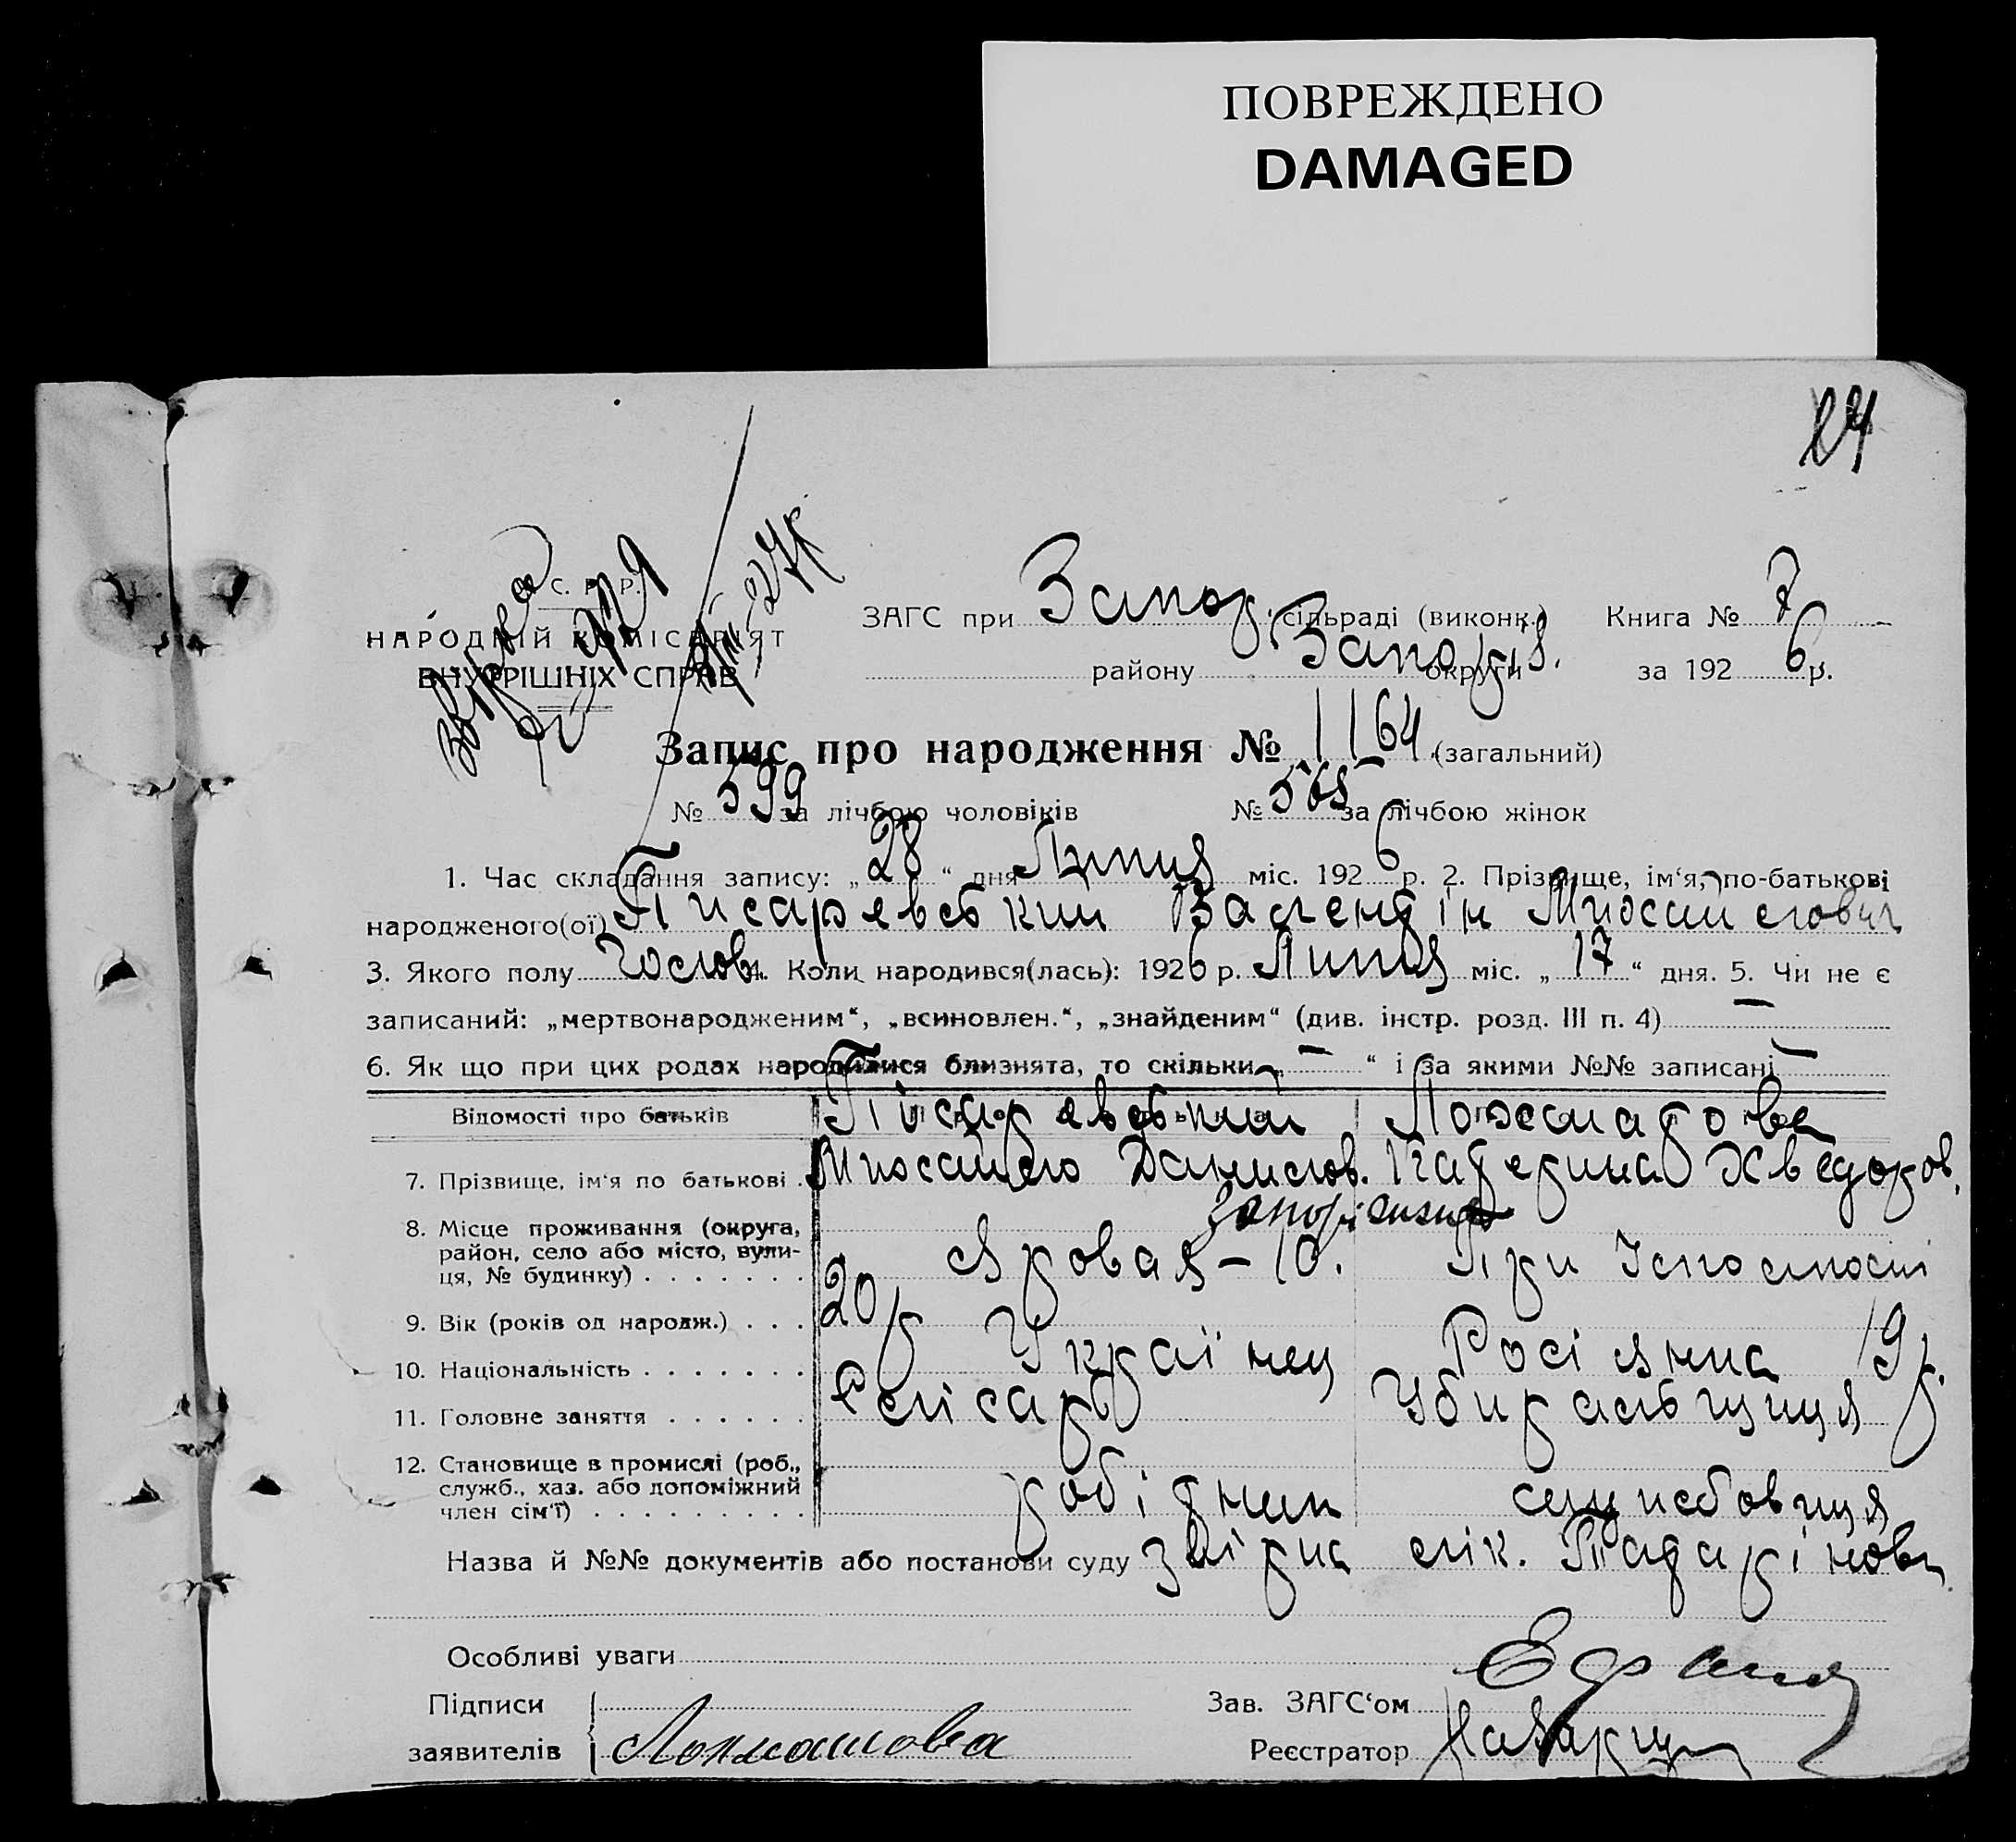 ПОВРЕЖДЕНО
DAMAGED
С. Р. Р.
НАРОДНІЙ КОМІСАРІЯТ
ВНУТРІШНІХ СПРАВ
ЗАГС при Запор. сільраді (виконк.) Книга № 7
району Запоріз. округи за 1926 р.
Запис про народження № 1164 (загальний)
№ 599 за лічбою чоловіків № 565 за лічбою жінок
1. Час складання запису: „28“ дня Липня міс. 1926 р. 2. Прізвище, ім‘я, по-батькові
народженого(ої) Писаревський Валентін Миосійлович
3. Якого полу Чолов. 4. Коли народився(лась): 1926 р. Липня міс. „17“ дня. 5. Чи не є
записаний: „мертвонародженим“, „всиновлен.“, „знайденим“ (див. інстр. розд. III п. 4) —
6. Як що при цих родах народилися близнята, то скільки „—“ і за якими №№ записані —
Відомості про батьків Пісаревський Лохматова
7. Прізвище, ім‘я по батькові Данилов. Катерина Хведоров.
8. Місце проживання (округа,
район, село або місто, вули-
ця, № будинку) Яровая – 10. При
9. Вік (років од народж.) 20 р 19 р.
10. Національність Українец Росіянка
11. Головне заняття Слісарь Убиральщиця
12. Становище в промислі (роб.,
служб., хаз. або допоміжний
член сім‘ї) робітник служебовиця
Назва й №№ документів або постанови суду лік.
Особливі уваги
Підписи
заявителів Лохматова
Зав. ЗАГС‘ом
Реєстратор